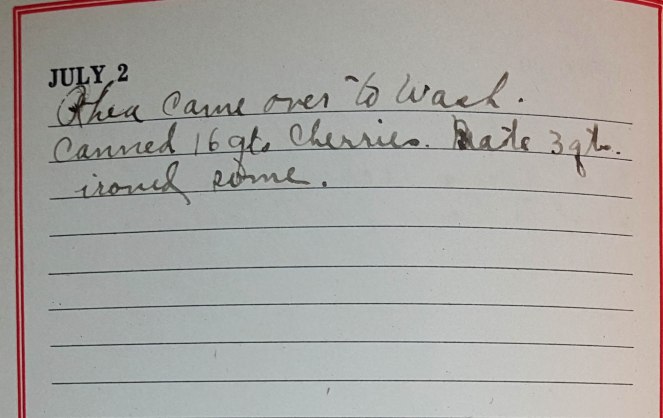 JULY 2
Rhea came over to wash.
Canned 16 qts cherries. Made 3 qts.
ironed some.